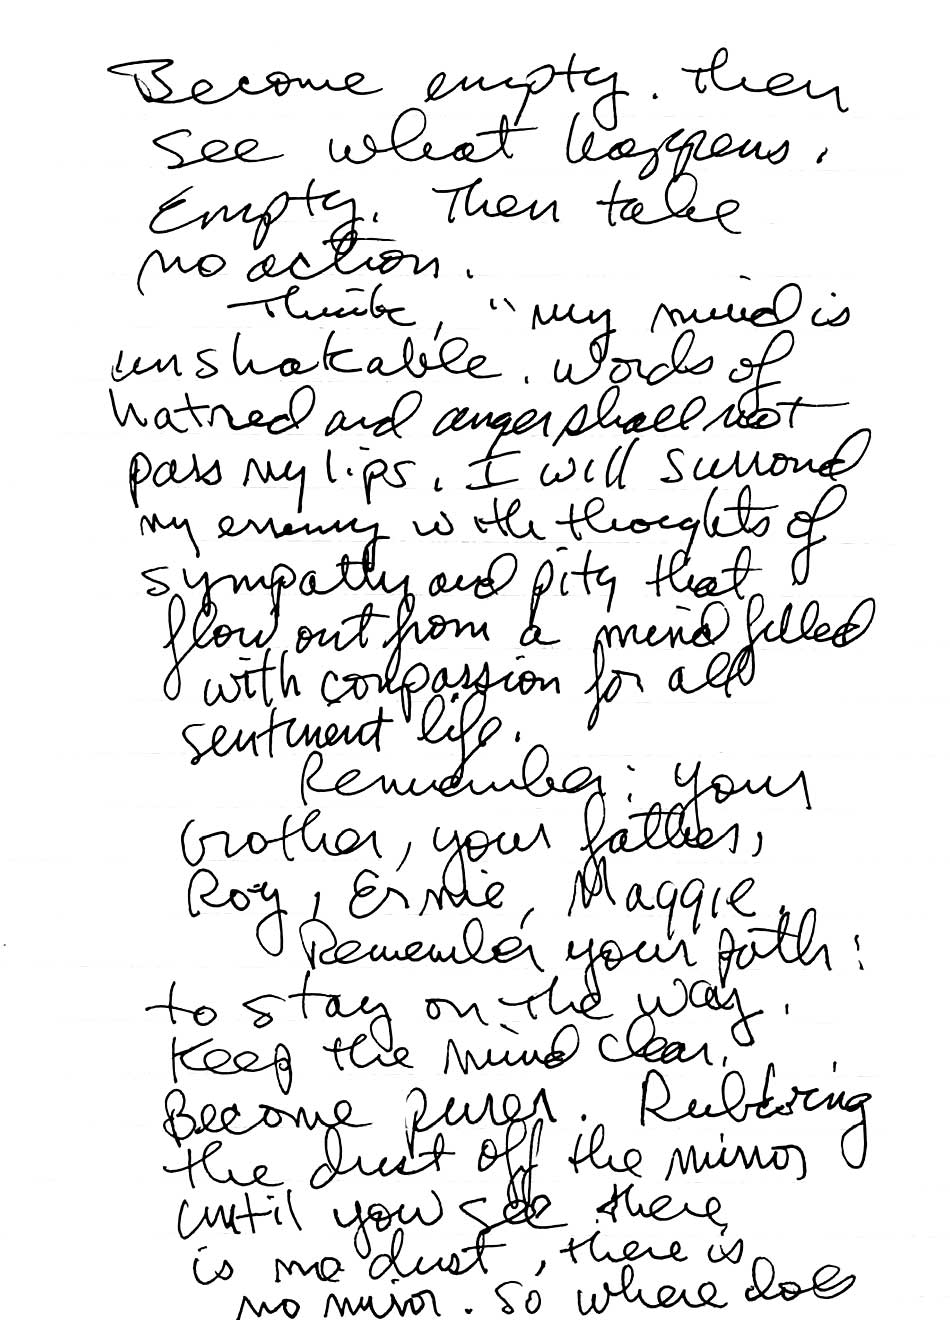 Become empty. Then
see what happens.
Empty. Then take
no action.
Think, "my mind is
unshakable. Words of
hatred and anger shall not
pass my lips. I will surround
my enemy with thoughts of
sympathy and pity that
flow out from a mind filled
with compassion for all
sentinent life.
Remember: your
brother, your father,
Roy, Ernie, Maggie.
Remember your path:
to stay on the way.
Keep the mind clear.
Become purer. Rubbing
the dust off the mirror
until you see there
is no dust, there is
no mirror. So where does